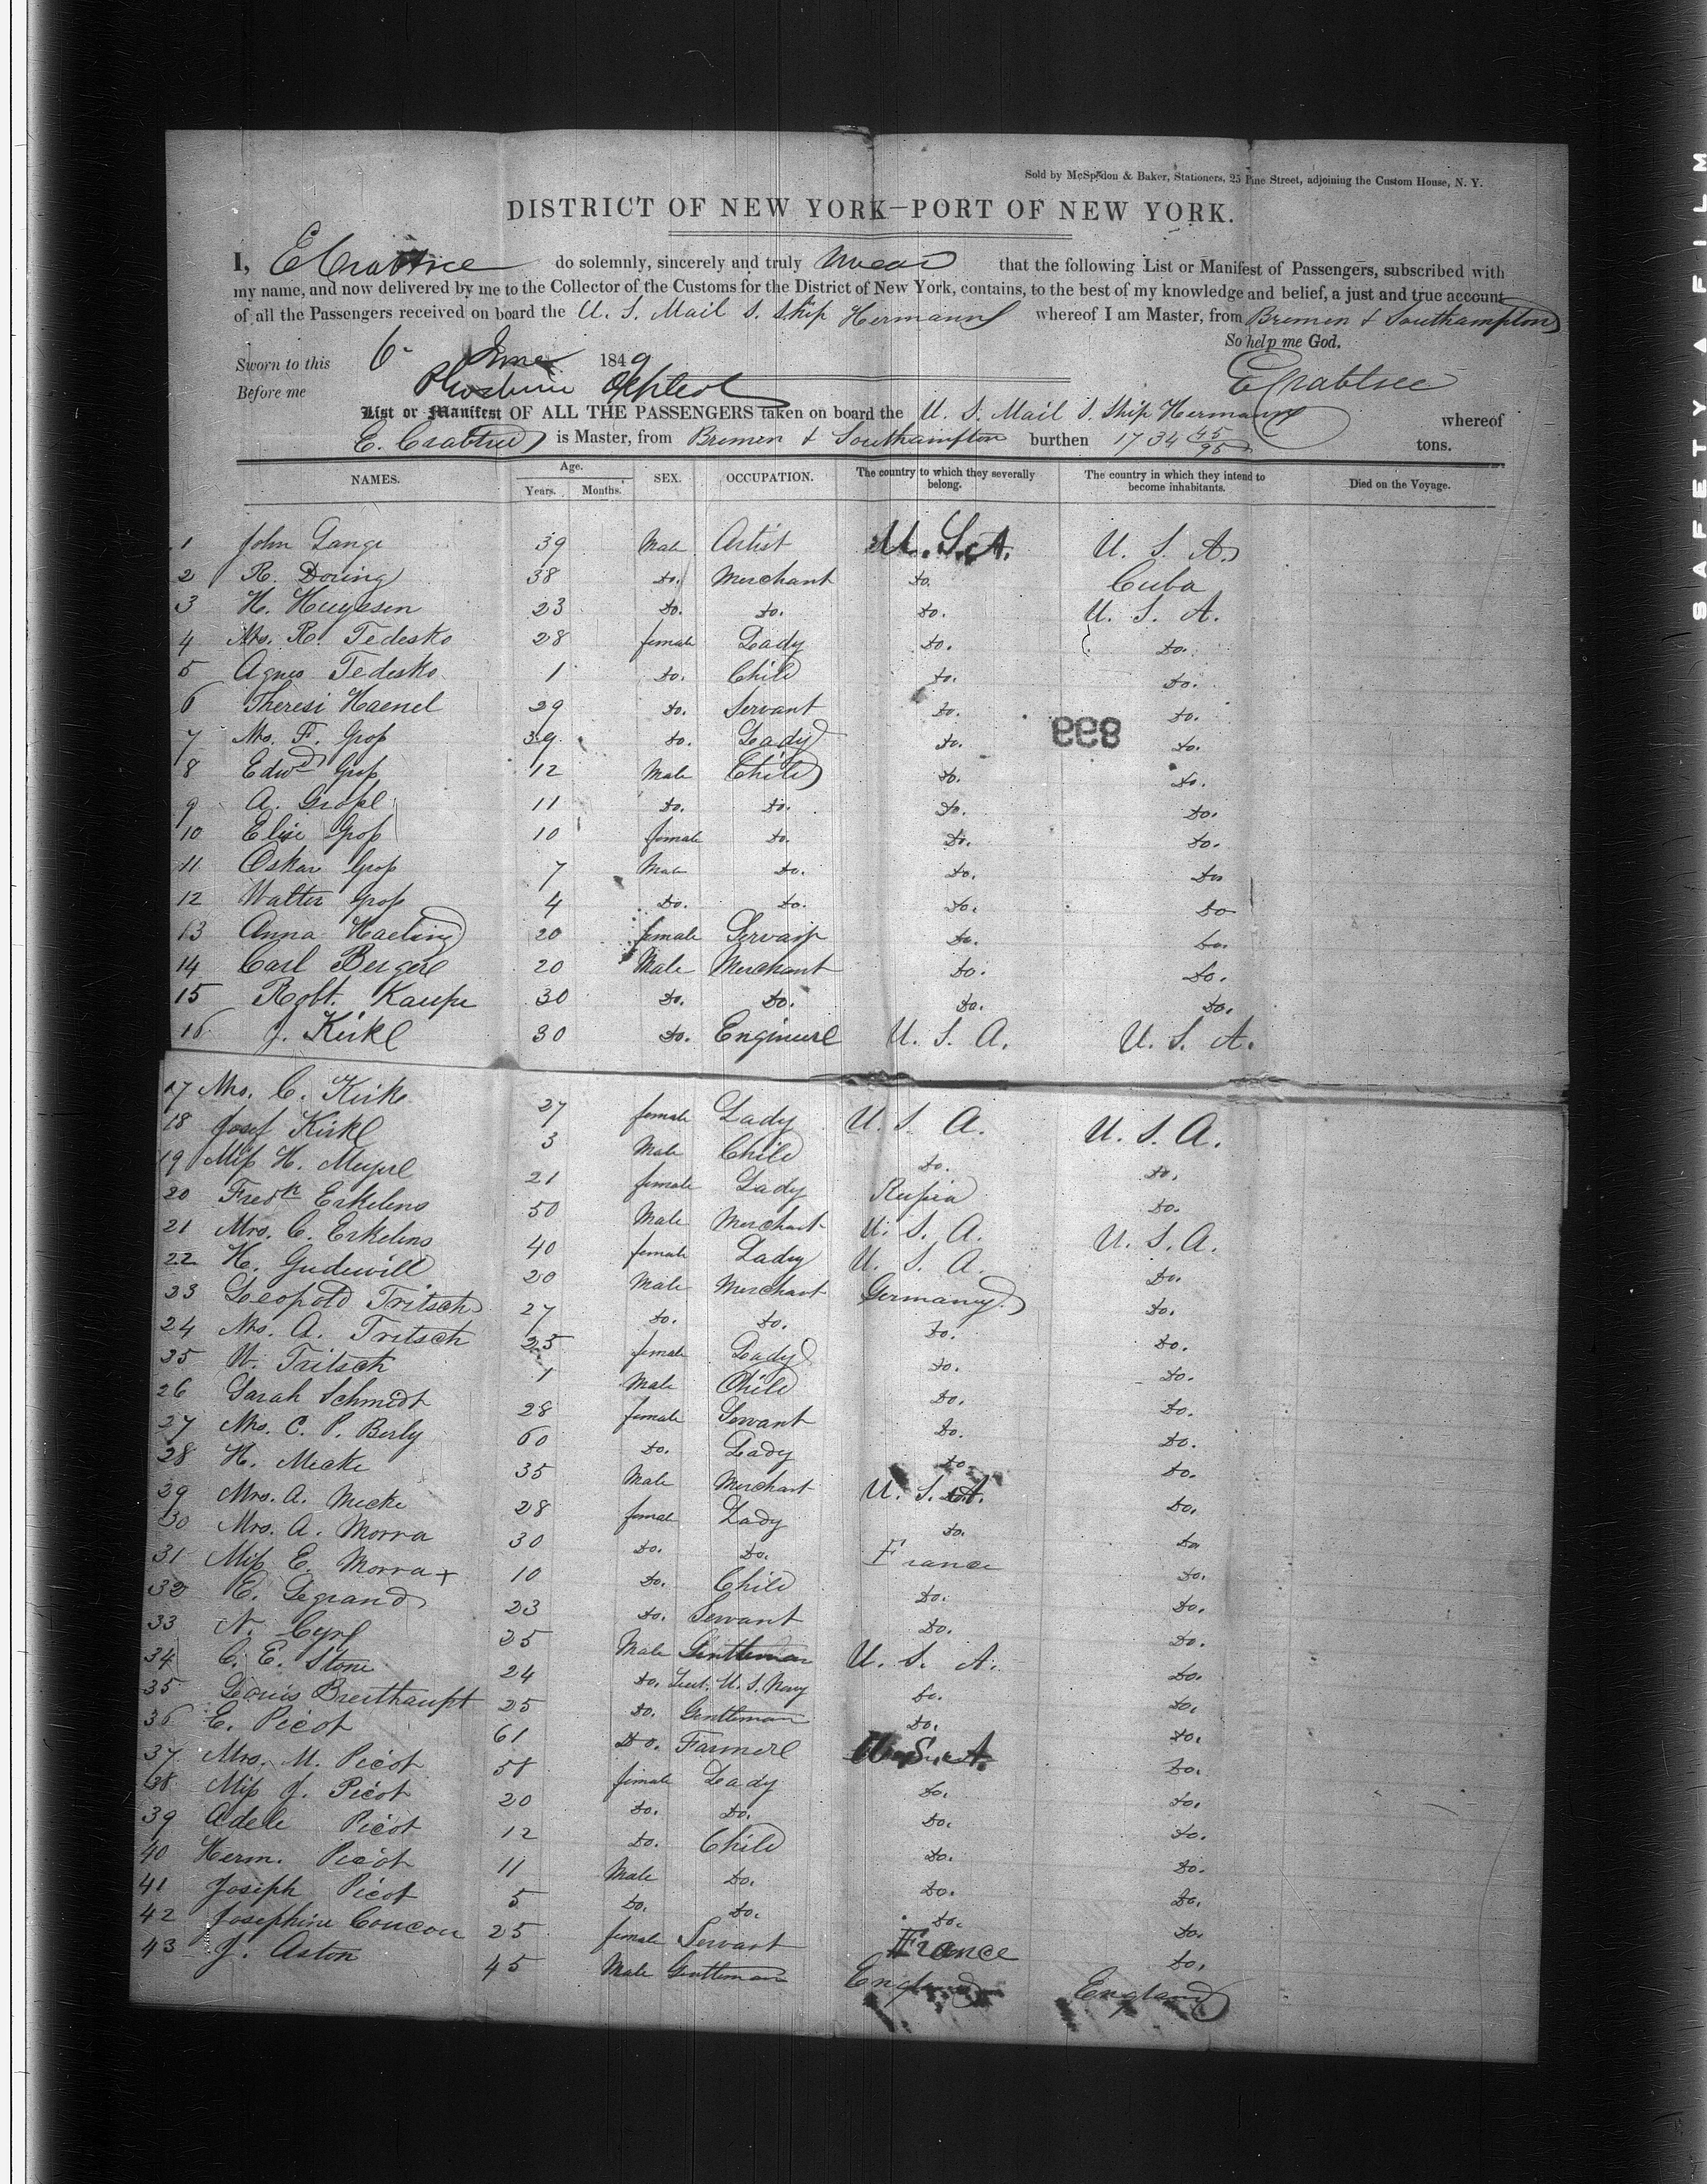 Sold by McSpedon & Baker, Stationers, 25 Pine Street, adjoining the Custom House, N. Y.
DISTRICT OF NEW YORK—PORT OF NEW YORK.
I, E Crabtree do solemnly, sincerely and truly swear that the following List or Manifest of Passengers, subscribed with
my name, and now delivered by me to the Collector of the Customs for the District of New York, contains, to the best of my knowledge and belief, a just and true account
of all the Passengers received on board the U. S. Mail S. Ship Hermann whereof I am Master, from Bremen & Southampton
So help me God.
Sworn to this 6 June 1849
Before me
E Crabtree
List or Manifest OF ALL THE PASSENGERS taken on board the U. S. Mail S. Ship Hermann whereof
E. Crabtree is Master, from Bremen & Southampton burthen 1734 45/95 tons.
NAMES. Age. Years. Months. SEX. OCCUPATION. The country to which they severally belong. The country in which they intend to become inhabitants. Died on the Voyage.
1 John Lange 39 Male Artist U. S. A. U. S. A.
2 R. Doring 38 do. Merchant do. Cuba
3 H. Huyssen 23 do. do. do. U. S. A.
4 Mrs. R. Tedesko 28 female Lady do. do.
5 Agnes Tedesko 1 do. Child do. do.
6 Therese Haenel 29 do. Servant do. do.
7 Mrs. F. Gross 39 do. Lady do. do.
899
8 Edwd Gross 12 Male Child do. do.
9 A. Gross 11 do. do. do. do.
10 Elise Gross 10 female do. do. do.
11 Oskar Gross 7 Male do. do. do
12 Walter Gross 4 do. do. do. do
13 Anna Haeling 20 female Servant do. do.
14 Carl Berger 20 Male Merchant do. do.
15 Robt. Kaupe 30 do. do. do. do.
16 J. Kirke 30 do. Engineer U. S. A. U. S. A.
17 Mrs. C. Kirke 27 female Lady U. S. A. U. S. A.
18 Josef Kirke 3 Male Child do. do.
19 Miss H. Meyer 21 female Lady Russia do.
20 Fredk Erkelens 50 Male Merchant U. S. A. U. S. A.
21 Mrs. C. Erkelens 40 female Lady U. S. A. do.
22 H. Gudewill 20 Male Merchant Germany do.
23 Leopold Tritsch 27 do. do. do. do.
24 Mrs. A. Tritsch 25 female Lady do. do.
25 W. Tritsch 1 Male Child do. do.
26 Sarah Schmidt 28 female Servant do. do.
27 Mrs. C. P. Berly 60 do. Lady do. do.
28 H. Mecke 35 Male Merchant U. S. A. do.
29 Mrs. A. Mecke 28 female Lady do. do
30 Mrs. A. Morra 30 do. do. France do.
31 Miss E. Morra + 10 do. Child do. do.
32 E. Legrand 23 do. Servant do. do.
33 N. Cyre 25 Male Gentleman U. S. A. do.
34 C. E. Stone 24 do. Lieut. U. S. Navy do. do.
35 Louis Breithaupt 25 do. Gentleman do. do.
36 E. Picot 61 do. Farmer U. S. A. do.
37 Mrs. M. Picot 58 female Lady do. do.
38 Miss J. Picot 20 do. do. do. do.
39 Adele Picot 12 do. Child do. do.
40 Herm. Picot 11 Male do. do. do.
41 Joseph Picot 5 do. do. do. do.
42 Josephine Coucou 25 female Servant France do.
43 J. Aston 45 Male Gentleman England England
SAFETY FILM